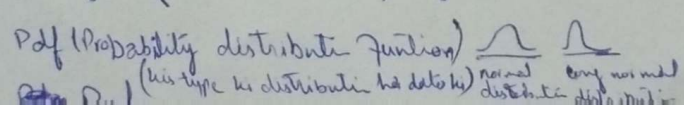 Pdf (Probability distributi Funtion)
(kis type ki distributin hai data ki) normal distributin normal distributin